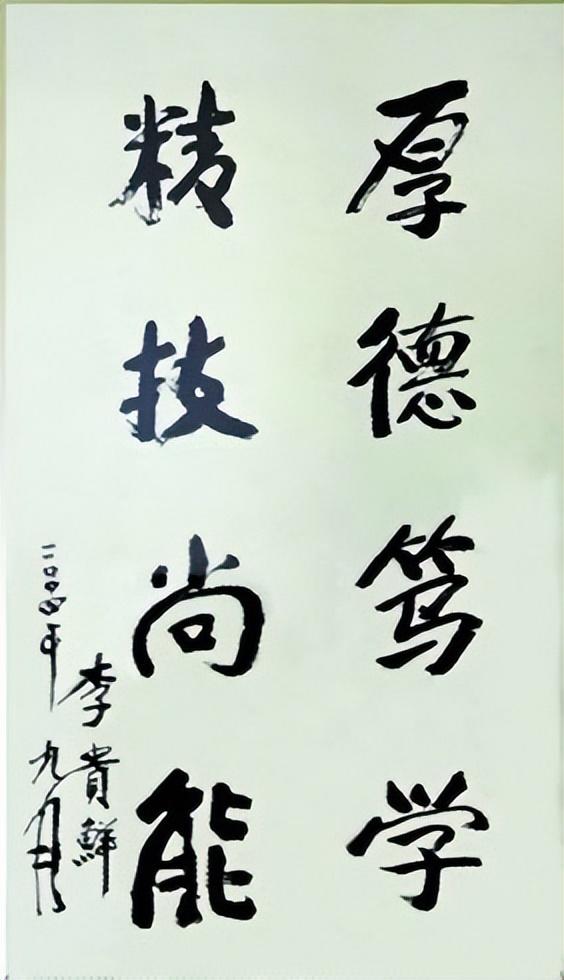 厚德笃学
精技尚能
李貴鮮
二〇〇四年九月